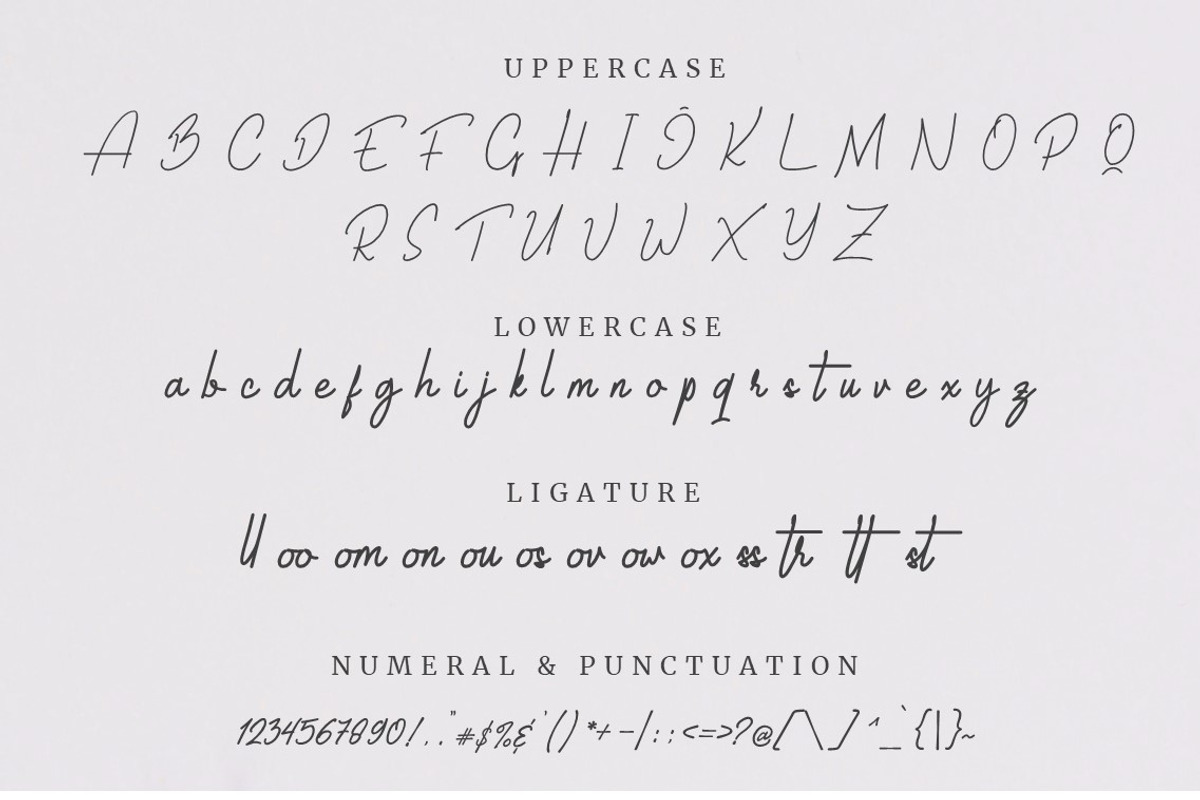 UPPERCASE
A B C D E F G H I J K L M N O P Q
R S T U V W X Y Z
LOWERCASE
a b c d e f g h i j k l m n o p q r s t u v e x y z
LIGATURE
ll oo om on ou os ov ow ox ss tr tt st
NUMERAL & PUNCTUATION
1234567890!.,"#$%&'()*+-/:;<=>?@[\]^_`{|}~